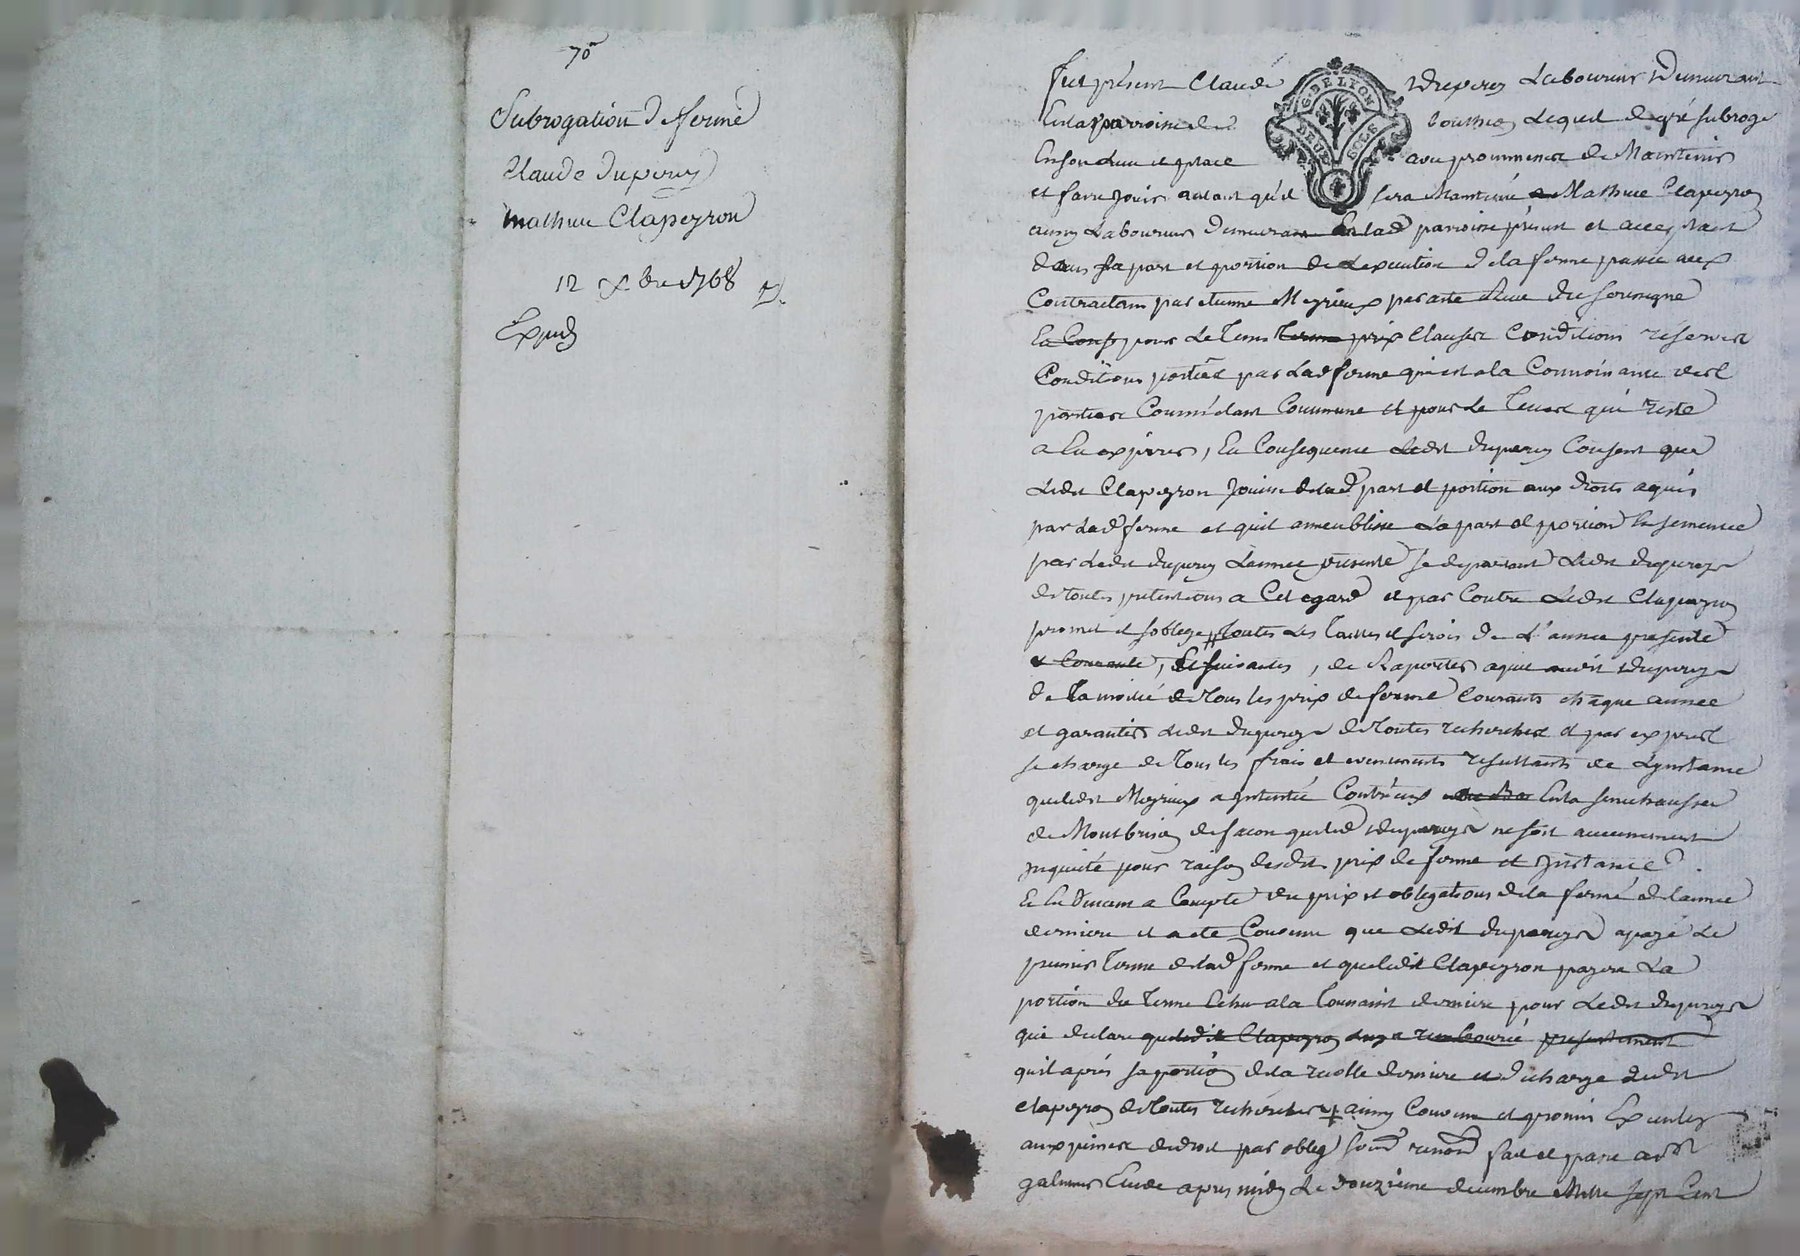 70
Subrogation de ferme
Claude dupuy
mathieu Clapeyron
12 xbre 1768
Expedj
G. DE LYON
DEUX SOLS
fut présent Claude dupuy Laboureur demeurant
En la parroisse de Lequel de gré subroge
En son Lieu et place avec promesse de Maintenir
et faire Jouir autant qu'il sera Maintenu Mathieu Clapeyron
aussy Laboureur demeurant En lad parroisse présent et acceptant
dans sa part et portion de Lexecution de la ferme passée aux
Contractans par etienne Meyrieux par acte Receu du soussigné
pour Le Tems prix Clauses Conditions réserves
Conditions portées par Ladferme qui est a la Connoissance des
parties Commune et pour Le Tems qui reste
a En expirer, En Consequence Ledit dupuy Consent que
Ledit Clapeyron Jouisse de lad part et portion aux droits aquis
par Lad ferme et quil ameublisse La part et portion En semence
par Ledit dupuy Lannee presente se departant Ledit dupuy
de toutes pretentions a Cet egard et par Contre Ledit Clapeyron
promet et soblige toutes Les Tailles et de L'annee presente
et Courante, et suivantes, de Raporter aquit audit dupuy
de La moitié de Tous les prix de ferme Courants chaque annee
et garantir Ledit dupuy de Toutes recherches et par exprest
se charge de Tous les frais et evenements resultants de Lynstance
que ledit Meyrieux a Jntentée Contr'eux En la senechaussee
de Montbrison de facon que led dupuy ne soit aucunement
Jnquieté pour raison desdits prix de ferme et Jnstance
a Compte du prix et obligations de la ferme de lannee
derniere et a ete Convenu que Ledit dupuy a payé Le
premier Terme de lad ferme et que ledit Clapeyron payera La
portion du Terme Echu a la Toussaint derniere pour Ledit dupuy
qui declare que ledit Clapeyron Luy a remboursé presentement
quil a pris sa portion de la recolte derniere et decharge Ledit
Clapeyron de Toutes recherches ainsy Convenu et promis Executer
aux peines de droit par oblig soumd renond fait et passé aud St
galmier Etude apres midy Le douzieme decembre Mille sept Cent